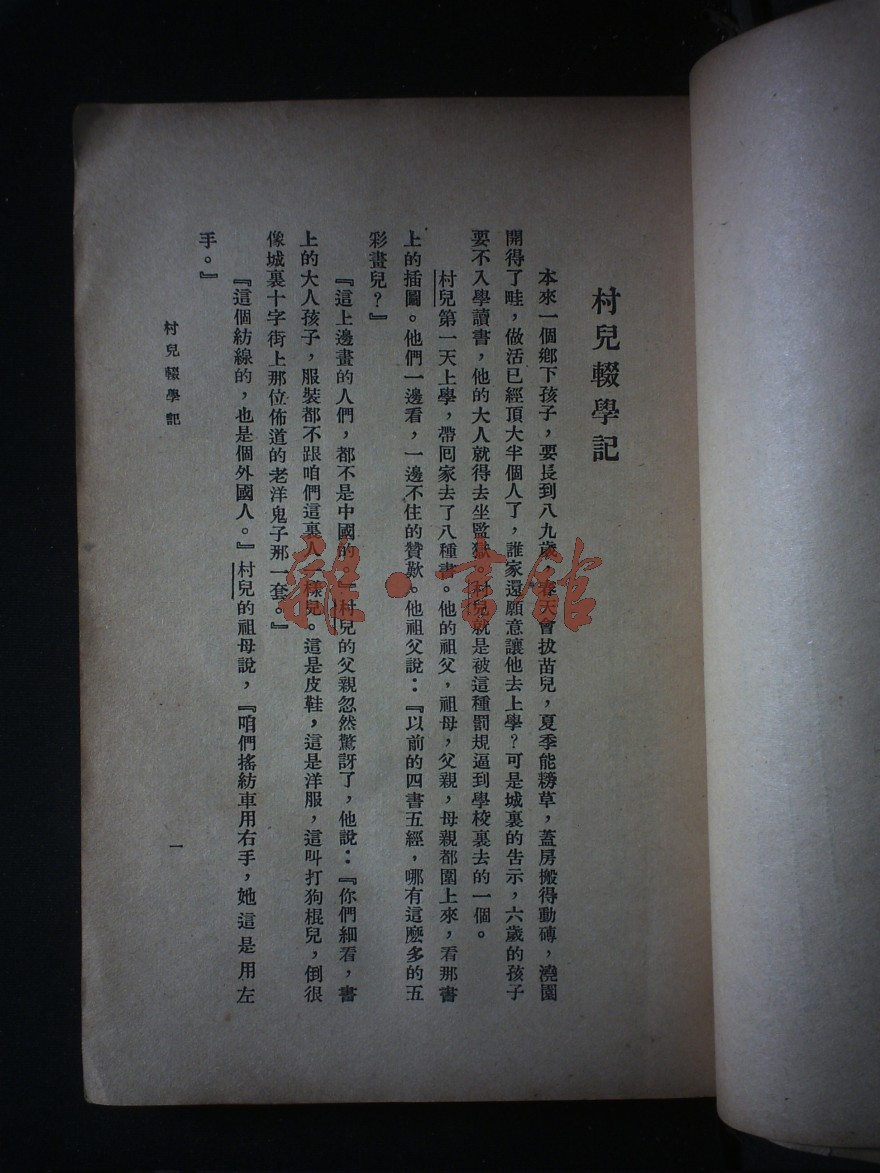 村兒輟學記
本來一個鄉下孩子，要長到八九歲，春天會拔苗兒，夏季能耪草，蓋房搬得動磚，澆園
開得了畦，做活已經頂大半個人了，誰家還願意讓他去上學？可是城裏的告示，六歲的孩子
要不入學讀書，他的大人就得去坐監獄。村兒就是被這種罰規逼到學校裏去的一個。
村兒第一天上學，帶囘家去了八種書。他的祖父，祖母，父親，母親都圍上來，看那書
上的插圖。他們一邊看，一邊不住的贊歎。他祖父說：『以前的四書五經，哪有這麽多的五
彩畫兒？』
『這上邊畫的人們，都不是中國的。』村兒的父親忽然驚訝了，他說：『你們細看，書
上的大人孩子，服裝都不跟咱們這裏人一樣兒。這是皮鞋，這是洋服，這叫打狗棍兒，倒很
像城裏十字街上那位佈道的老洋鬼子那一套。』
『這個紡線的，也是個外國人。』村兒的祖母說，『咱們搖紡車用右手，她這是用左
手。』
村兒輟學記
一
雜·書館